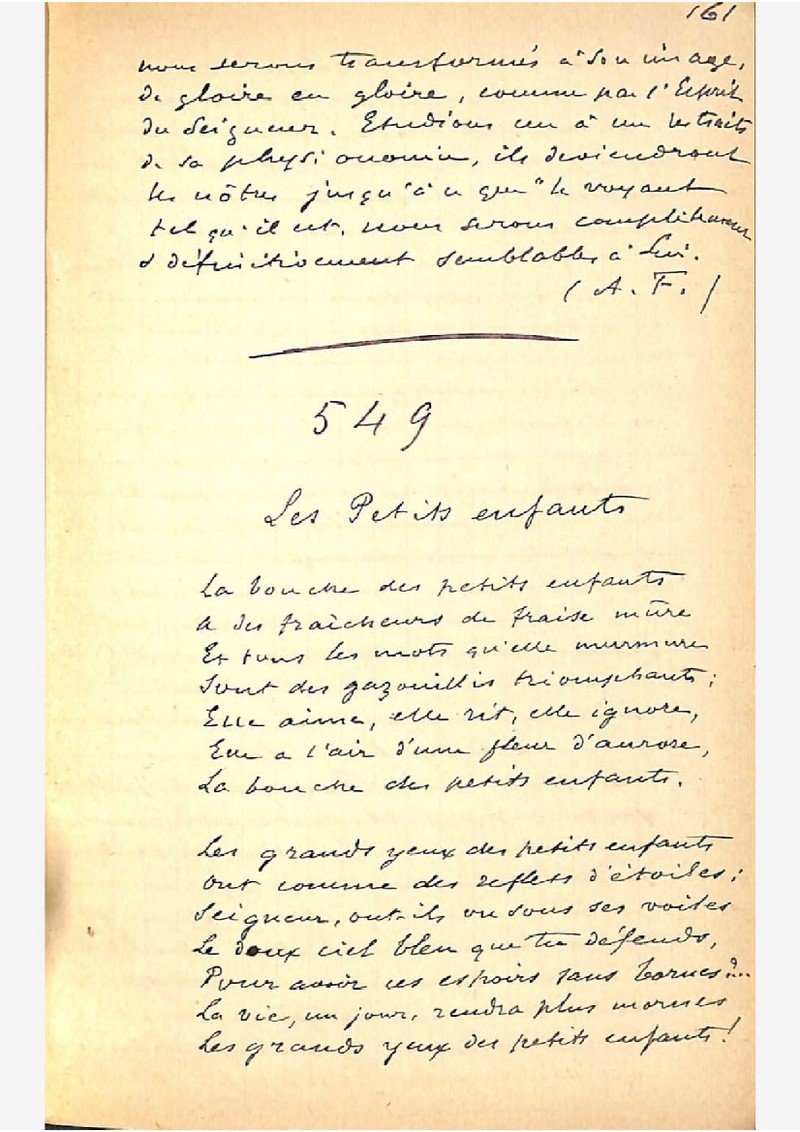 161
nous serons transformés à son image,
de gloire en gloire, comme par l'Esprit
du Seigneur. Etudions un à un les traits
de sa physionomie, ils deviendront
les nôtres jusqu'à ce que "le voyant
tel qu'il est, nous serons complètement
& définitivement semblables à Lui.
(A. F.)
549
Les Petits enfants
La bouche des petits enfants
A des fraîcheurs de fraise mûre
Et tous les mots qu'elle murmure
Sont des gazouillis triomphants;
Elle aime, elle rit, elle ignore,
Elle a l'air d'une fleur d'aurore,
La bouche des petits enfants.
Les grands yeux des petits enfants
Ont comme des reflets d'étoiles;
Seigneur, ont-ils vu sous ses voiles
Le doux ciel bleu que tu défends,
Pour avoir ces espoirs sans bornes?..
La vie, un jour, rendra plus mornes
Les grands yeux des petits enfants!